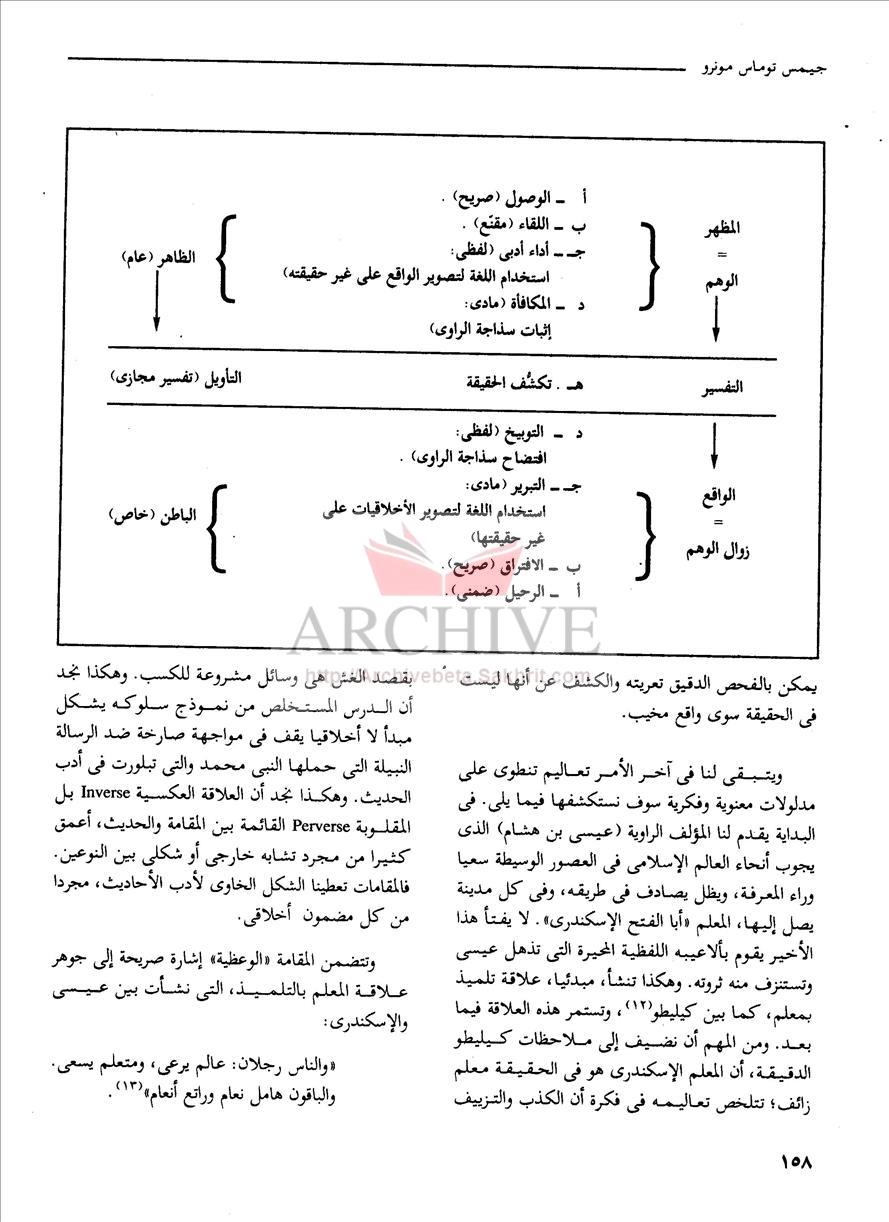 جيمس توماس مونرو
أ ـ الوصول (صريح) .
المظهر
ب ـ اللقاء (مقنّع) .
=
جـ ـ أداء أدبى (لفظى:
الظاهر (عام)
الوهم
استخدام اللغة لتصوير الواقع على غير حقيقته)
د ـ المكافأة (مادى:
إثبات سذاجة الراوى)
التفسير
هـ . تكشُّف الحقيقة
التأويل (تفسير مجازى)
د ـ التوبيخ (لفظى:
افتضاح سذاجة الراوى) .
جـ ـ التبرير (مادى:
الواقع
استخدام اللغة لتصوير الأخلاقيات على
الباطن (خاص)
=
غير حقيقتها)
زوال الوهم
ب ـ الافتراق (صريح).
أ ـ الرحيل (ضمنى).
ARCHIVE
http://Archivebeta.Sakhrit.com
يمكن بالفحص الدقيق تعريته والكشف عن أنها ليست
فى الحقيقة سوى واقع مخيب.
ويتبقى لنا فى آخر الأمر تعاليم تنطوى على
مدلولات معنوية وفكرية سوف نستكشفها فيما يلى. فى
البداية يقدم لنا المؤلف الراوية (عيسى بن هشام) الذى
يجوب أنحاء العالم الإسلامى فى العصور الوسيطة سعيا
وراء المعرفة، ويظل يصادف فى طريقه، وفى كل مدينة
يصل إليها، المعلم «أبا الفتح الإسكندرى». لا يفتأ هذا
الأخير يقوم بألاعيبه اللفظية المحيرة التى تذهل عيسى
وتستنزف منه ثروته. وهكذا تنشأ، مبدئيا، علاقة تلميذ
بمعلم، كما بين كيليطو(١٢)، وتستمر هذه العلاقة فيما
بعد. ومن المهم أن نضيف إلى ملاحظات كيليطو
الدقيقة، أن المعلم الإسكندرى هو فى الحقيقة معلم
زائف؛ تتلخص تعاليمه فى فكرة أن الكذب والتزييف
بقصد الغش هى وسائل مشروعة للكسب. وهكذا نجد
أن الدرس المستخلص من نموذج سلوكه يشكل
مبدأ لا أخلاقيا يقف فى مواجهة صارخة ضد الرسالة
النبيلة التى حملها النبى محمد والتى تبلورت فى أدب
الحديث. وهكذا نجد أن العلاقة العكسية Inverse بل
المقلوبة Perverse القائمة بين المقامة والحديث، أعمق
كثيرا من مجرد تشابه خارجى أو شكلى بين النوعين.
فالمقامات تعطينا الشكل الخاوى لأدب الأحاديث، مجردا
من كل مضمون أخلاقى.
وتتضمن المقامة «الوعظية» إشارة صريحة إلى جوهر
علاقة المعلم بالتلميذ، التى نشأت بين عيسى
والإسكندرى:
«والناس رجلان: عالم يرعى، ومتعلم يسعى.
والباقون هامل نعام وراتع أنعام»(١٣).
١٥٨